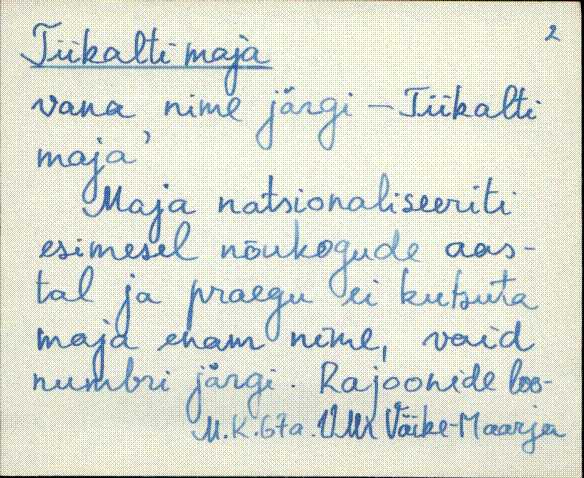 2
Tiikalti maja
vana nime järgi – Tiikalti
maja'
Maja natsionaliseeriti
esimesel nõukogude aas-
tal ja praegu ei kutsuta
maja enam nime, vaid
numbri järgi. Rajoonide loo-
M.K. 67a. VMR Väike-Maarja